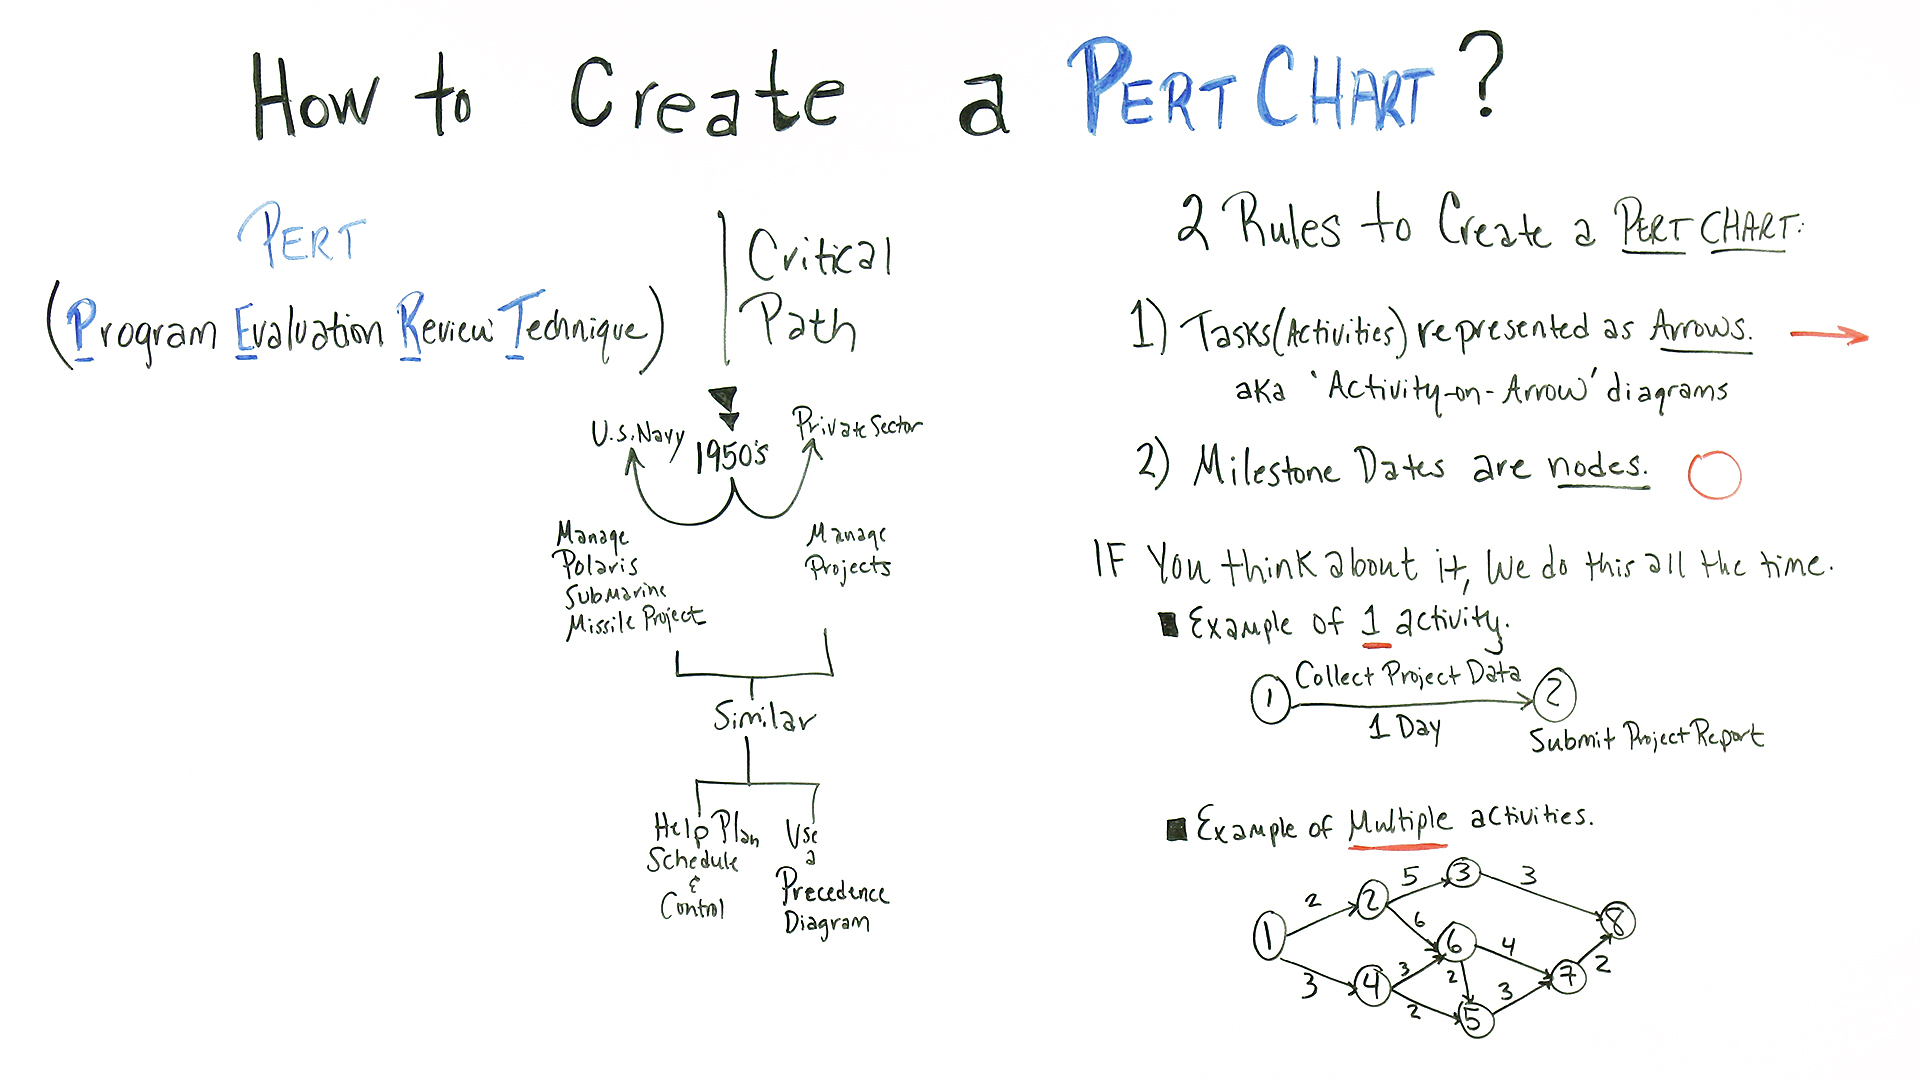 How to Create a PERT CHART?
PERT
(Program Evaluation Review Technique)
Critical
Path
U.S. Navy
1950's
Private Sector
Manage
Polaris
Submarine
Missile Project
Manage
Projects
Similar
Help Plan
Schedule
&
Control
Use
a
Precedence
Diagram
2 Rules to Create a PERT CHART:
1) Tasks (Activities) represented as Arrows.
aka 'Activity-on-Arrow' diagrams
2) Milestone Dates are nodes.
IF You think about it, We do this all the time.
Example of 1 activity.
1
Collect Project Data
2
1 Day
Submit Project Report
Example of Multiple activities.
5 3 3
2 2
6 8
1 6 4
3 4 3 2 7 2
2 3
5